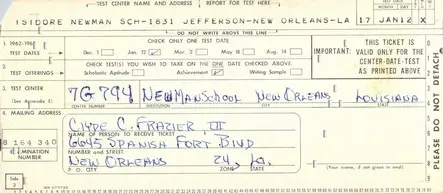 TEST CENTER NAME AND ADDRESS REPORT FOR TEST HERE
ISIDORE NEWMAN SCH-1631 JEFFERSON-NEW ORLEANS-LA 17 JAN12 X
DO NOT WRITE ABOVE THIS LINE
1 1962-196 TEST DATES CHECK ONLY ONE TEST DATE
Dec. 1 Jan. 12 Mar. 2 May 18 Aug. 14
IMPORTANT: THIS TICKET IS VALID ONLY FOR THE CENTER-DATE-TEST AS PRINTED ABOVE
2 TEST OFFERINGS CHECK TEST(S) YOU WISH TO TAKE ON THE ONE DATE CHECKED ABOVE.
Scholastic Aptitude Achievement Writing Sample
3 TEST CENTER (See Appendix) 7G 794 NEWMAN SCHOOL NEW ORLEANS LOUISIANA
CENTER NUMBER INSTITUTION CITY STATE
4 MAILING ADDRESS
CLYDE C. FRAZIER III
NAME OF PERSON TO RECEIVE TICKET
8 164 340 6645 SPANISH FORT BLVD
MINATION NUMBER NUMBER AND STREET
NEW ORLEANS 24, La.
P. O. CITY ZONE STATE
(Your name, if not given in small)
Side 2
PLEASE DO NOT DETACH